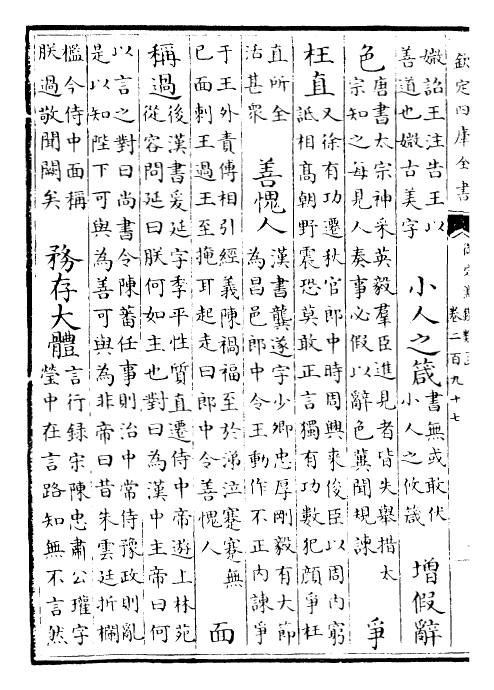 欽定四庫全書
卷二百九十七
媺詔王注告王以
善道也媺古美字
小人之箴
書無或敢伏
小人之攸箴
增假辭
色
唐書太宗神采英毅羣臣進見者皆失舉措太
宗知之每見人奏事必假以辭色冀聞規諫
爭
枉直
又徐有功遷秋官郎中時周興來俊臣以周内窮
詆相高朝野震恐莫敢正言獨有功數犯顔爭枉
直所全
活甚衆
善愧人
漢書龔遂字少卿忠厚剛毅有大節
為昌邑郎中令王動作不正内諫爭
于王外責傅相引經義陳禍福至於涕泣蹇蹇無
已面刺王過王至掩耳起走曰郎中令善愧人
面
稱過
後漢書爰延字季平性質直遷侍中帝遊上林苑
從容問延曰朕何如主也對曰為漢中主帝曰何
以言之對曰尚書令陳蕃任事則治中常侍豫政則亂
是以知陛下可與為善可與為非帝曰昔朱雲廷折欄
檻今侍中面稱
朕過敬聞闕矣
務存大體
言行録宋陳忠肅公瓘字
瑩中在言路知無不言然